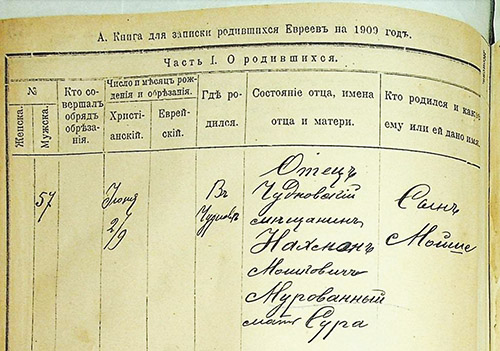 А. Книга для записки родившихся Евреевъ на 1909 годъ.
Часть I. О родившихся.
№
Женска.
Мужска.
Кто со-
вершалъ
обрядъ
обрѣза-
нія.
Число и мѣсяцъ рож-
денія и обрѣзанія.
Христі-
анскій.
Еврей-
скій.
Гдѣ ро-
дился.
Состояніе отца, имена
отца и матери.
Кто родился и какое
ему или ей дано имя.
57
Іюня
2/9
Въ
Чудновѣ
Отецъ
Чудновскій
мѣщанинъ
Нахманъ
Мошковичъ
Мурованный
мать Сура
Сынъ
Мойше